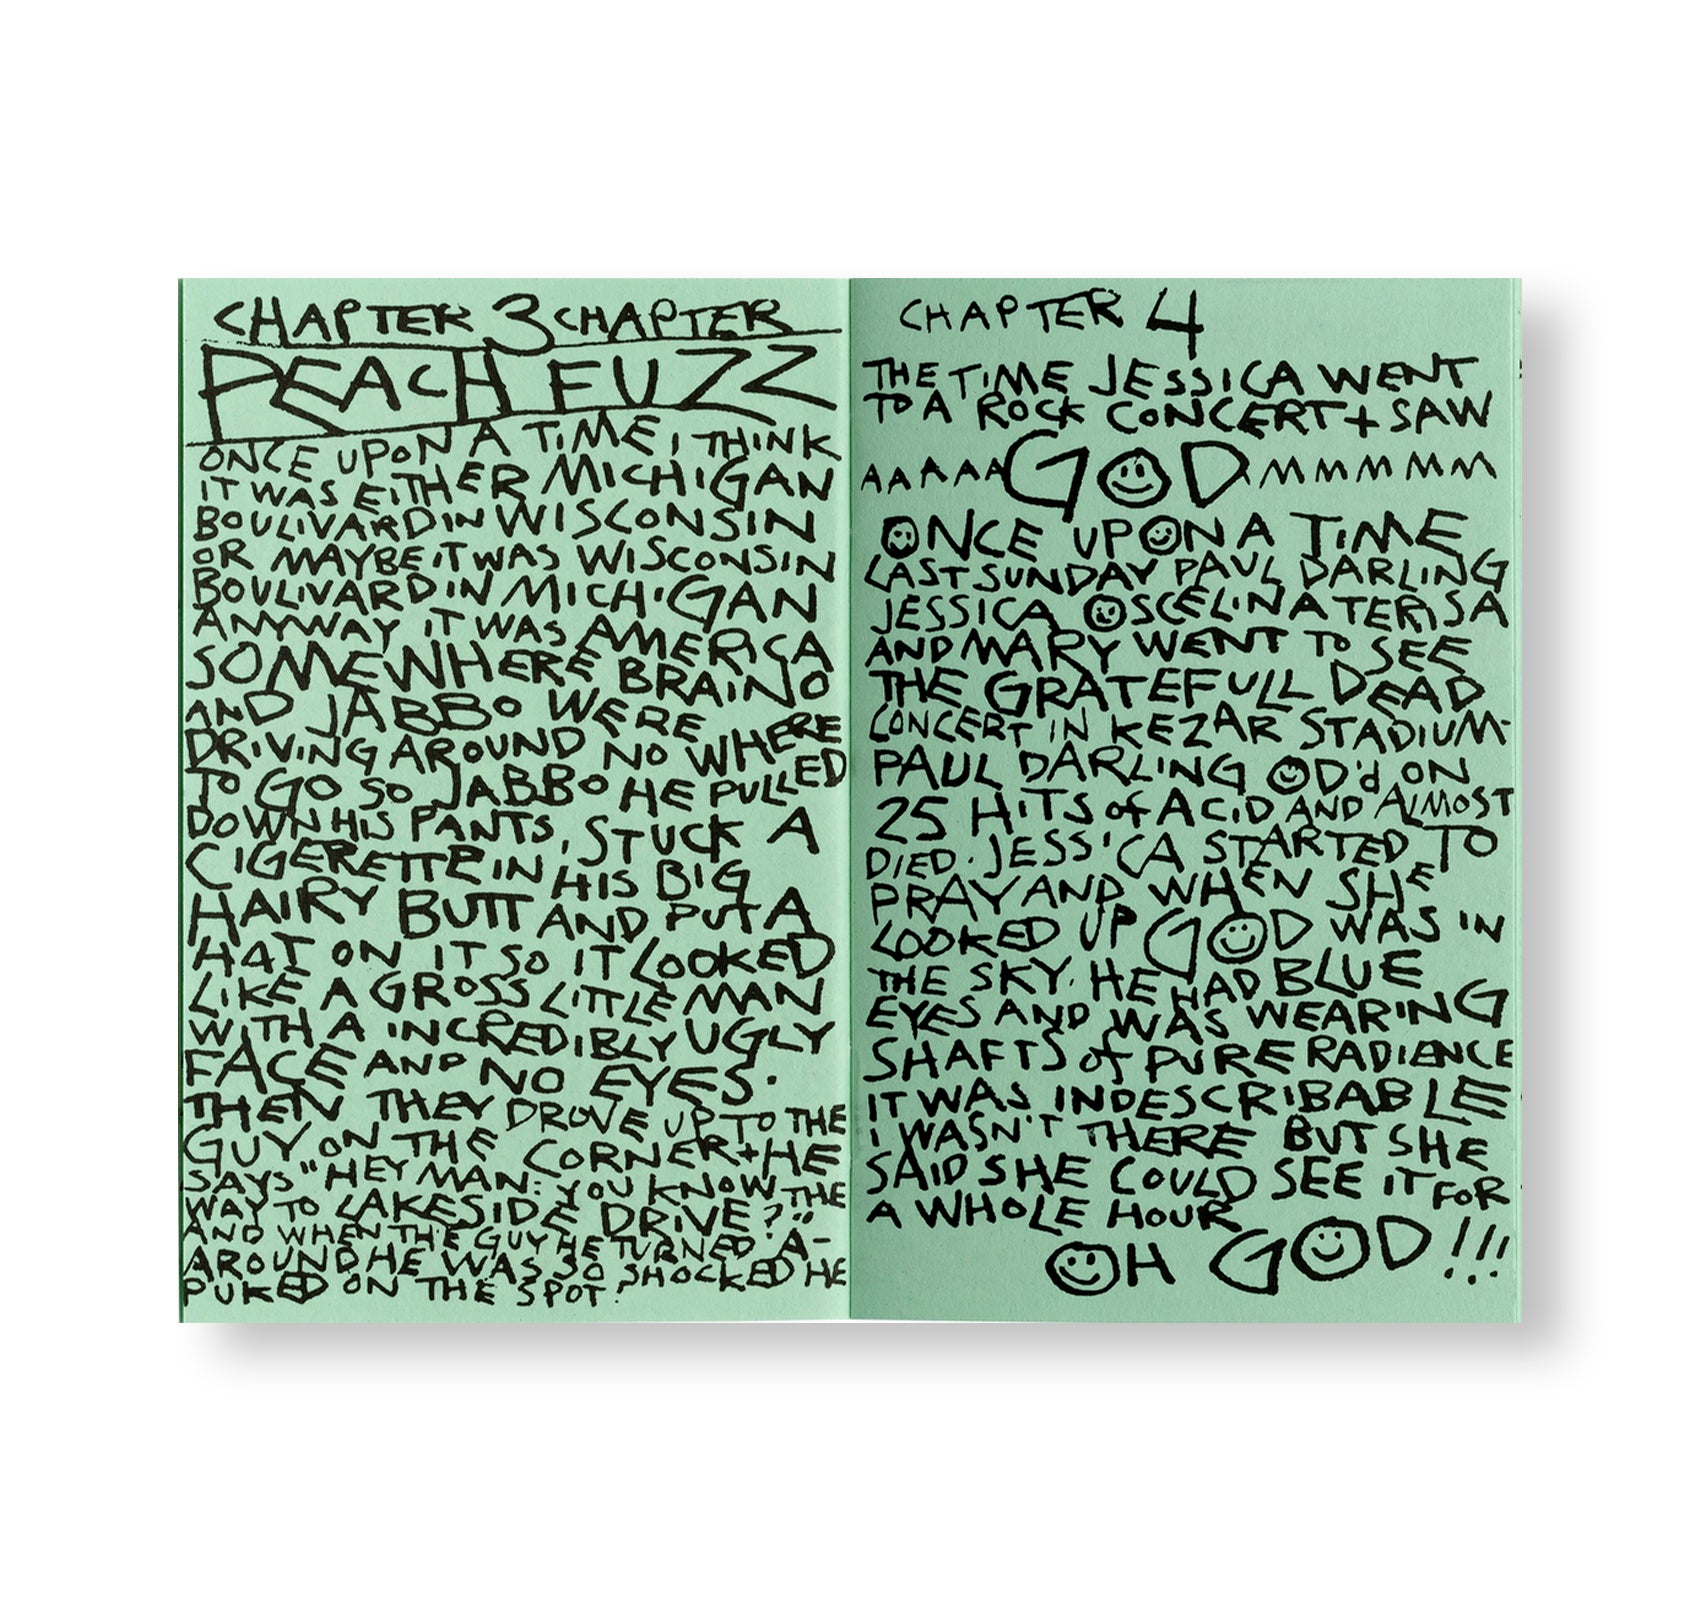 CHAPTER 3 CHAPTER
PEACH FUZZ
ONCE UPON A TIME I THINK
IT WAS EITHER MICHIGAN
BOULIVARD IN WISCONSIN
OR MAYBE IT WAS WISCONSIN
BOULIVARD IN MICHIGAN
ANYWAY IT WAS AMERICA
SOMEWHERE BRAINO
AND JABBO WERE
DRIVING AROUND NO WHERE
TO GO SO JABBO HE PULLED
DOWN HIS PANTS, STUCK A
CIGERETTE IN HIS BIG
HAIRY BUTT AND PUT A
HAT ON IT SO IT LOOKED
LIKE A GROSS LITTLE MAN
WITH A INCREDIBLY UGLY
FACE AND NO EYES.
THEN THEY DROVE UP TO THE
GUY ON THE CORNER + HE
SAYS "HEY MAN: YOU KNOW THE
WAY TO LAKESIDE DRIVE?"
AND WHEN THE GUY HE TURNED A-
AROUND HE WAS SO SHOCKED HE
PUKED ON THE SPOT.
CHAPTER 4
THE TIME JESSICA WENT
TO A ROCK CONCERT + SAW
AAAAAGODMMMMMM
ONCE UPON A TIME
LAST SUNDAY PAUL DARLING
JESSICA OSCELIN ATERISA
AND MARY WENT TO SEE
THE GRATEFULL DEAD
CONCERT IN KEZAR STADIUM-
PAUL DARLING OD'd ON
25 HITS of ACID AND ALMOST
DIED. JESSICA STARTED TO
PRAY AND WHEN SHE
LOOKED UP GOD WAS IN
THE SKY. HE HAD BLUE
EYES AND WAS WEARING
SHAFTS of PURE RADIENCE
IT WAS INDESCRIBABLE
I WASN'T THERE BUT SHE
SAID SHE COULD SEE IT FOR
A WHOLE HOUR
OH GOD!!!